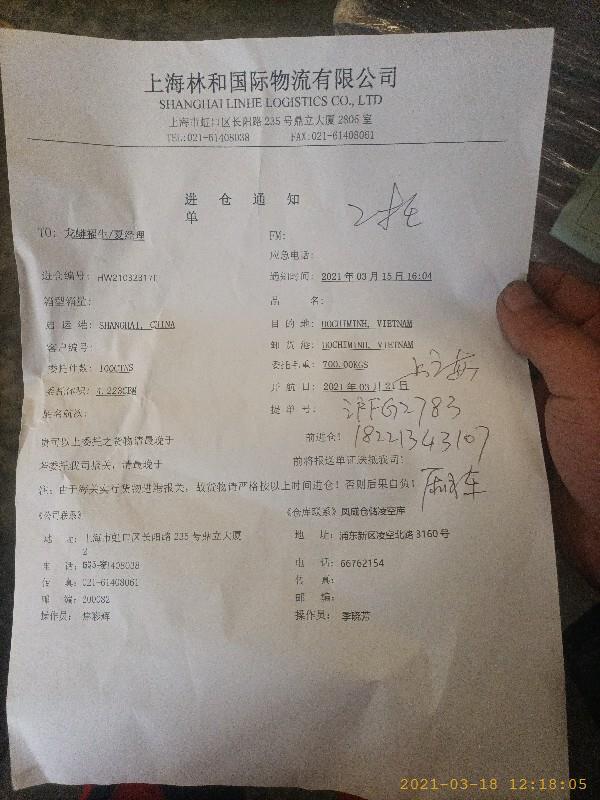 上海林和国际物流有限公司
SHANGHAI LINHE LOGISTICS CO., LTD
上海市虹口区长阳路 235 号鼎立大厦 2805 室
TEL:021-61408038 FAX:021-61408061
进 仓 通 知
单
2托
TO: 龙 /夏经理 FM:
应急电话:
进仓编号: 通知时间: 2021 年 03 月 15 日 16:04
箱型箱量: 品 名:
启 运 港: SHANGHAI, CHINA 目 的 地: HOCHIMINH, VIETNAM
客户编号: 卸 货 港: HOCHIMINH, VIETNAM
委托件数: 100CTNS 委托毛重: 700.00KGS
委托体积: 4.223CBM 开 航 日: 2021 年 03 月 21 日
船名航次: 提 单 号: 沪FG2783
贵司以上委托之货物请最晚于 前进仓! 18221343107
若委托我司报关, 请最晚于 前将报送单证送抵我司!
注: 由于海关实行货物进港报关, 故货物请严格按以上时间进仓! 否则后果自负!
《公司联系》 《仓库联系》凤成仓储凌空库
地 址: 上海市虹口区长阳路 235 号鼎立大厦 地 址: 浦东新区凌空北路 3160 号
2
电 话: 66762154
传 真: 021-61408061 传 真:
邮 编: 200082 邮 编:
操作员: 焦彩辉 操作员: 季晓芳
2021-03-18 12:18:05